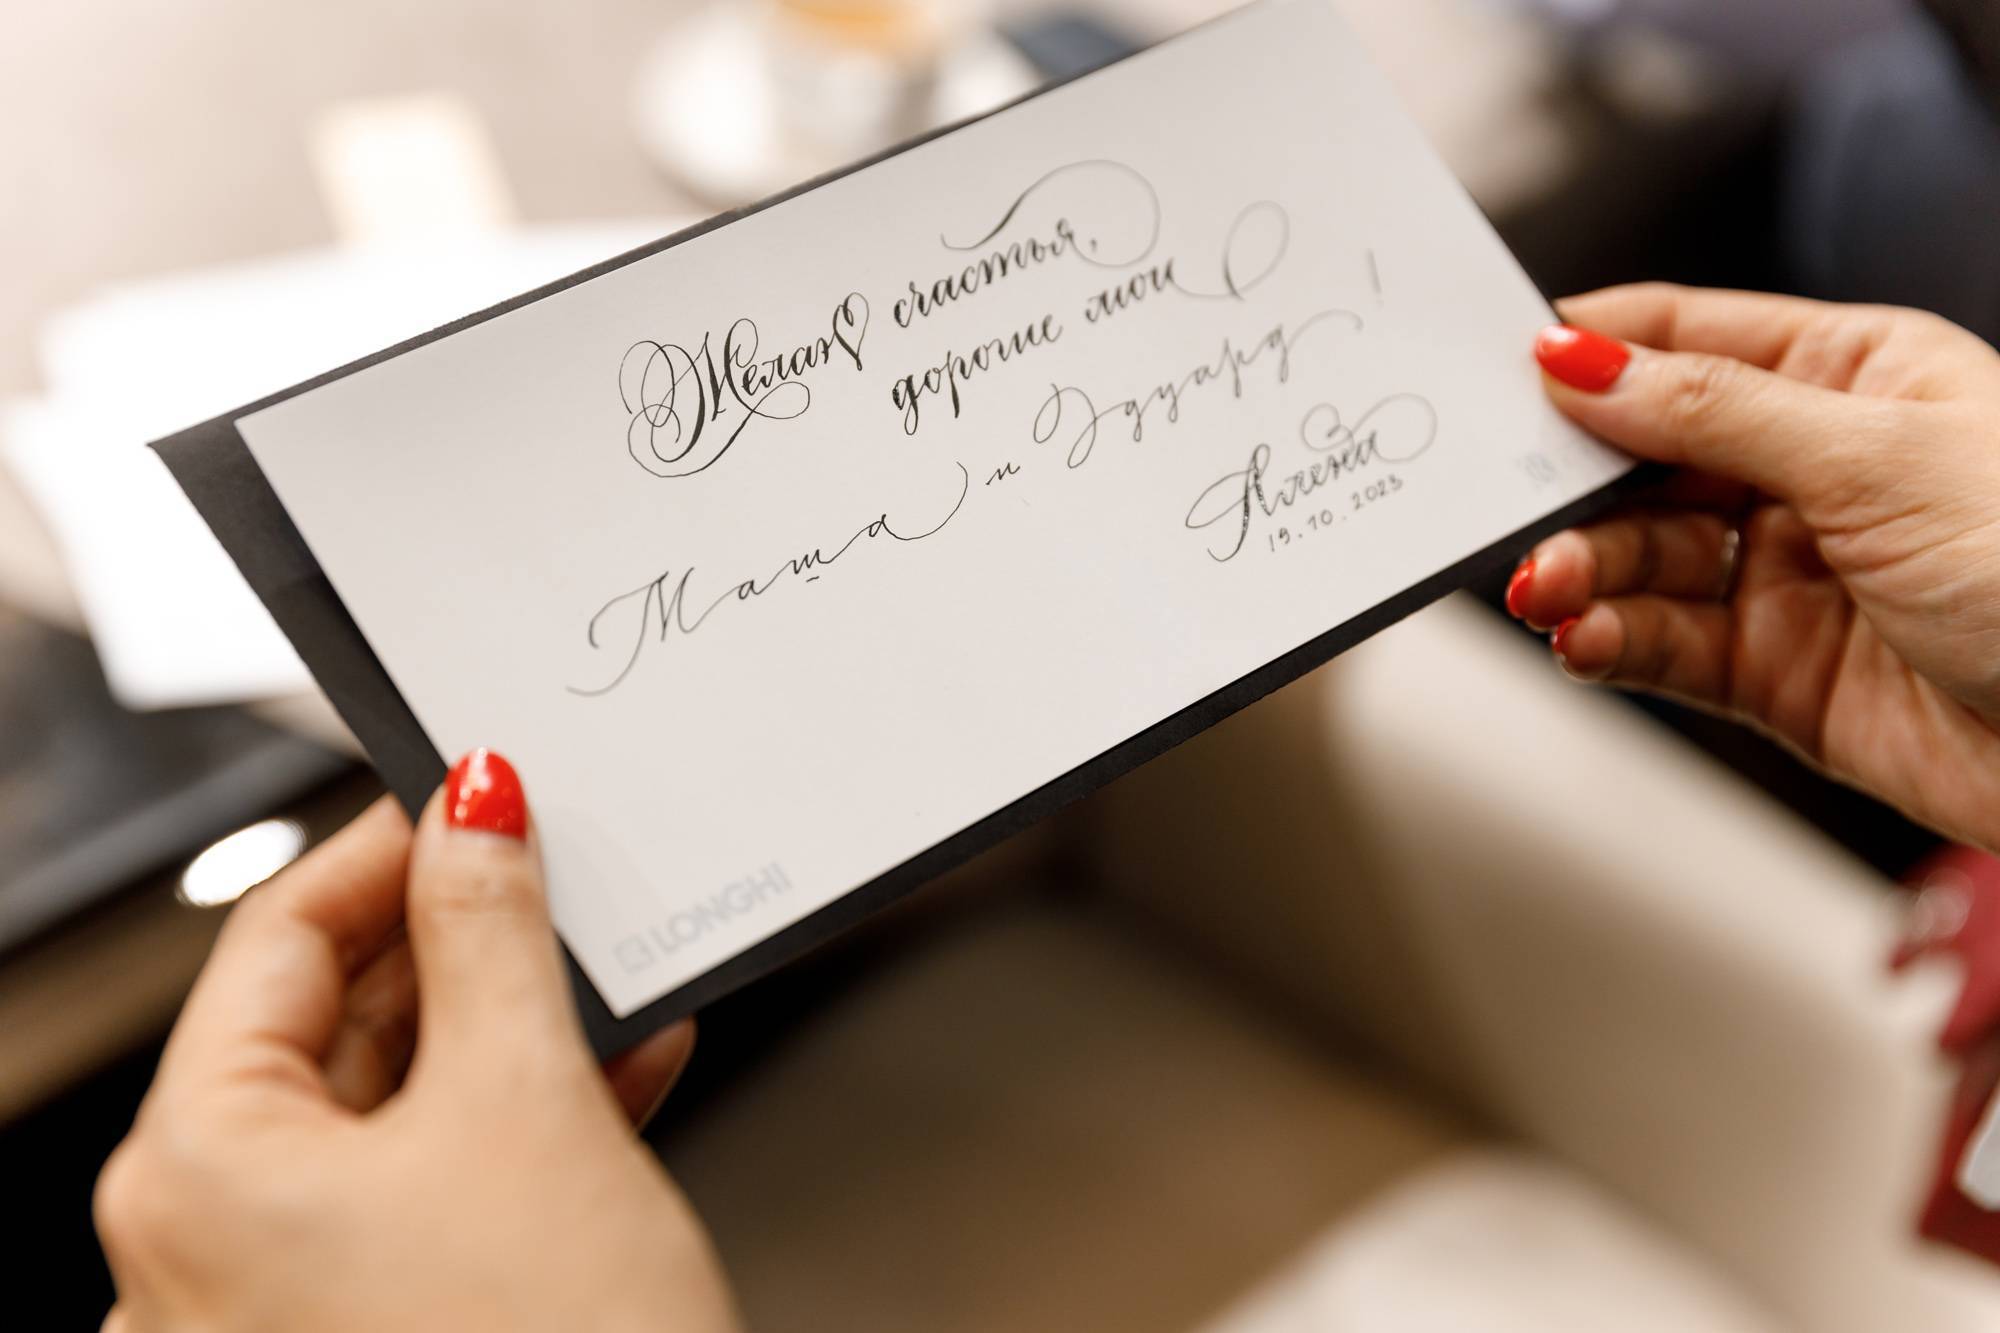 Желаю счастья,
дорогие мои
Маша и Эдуард!
Алёна
19.10.2023
LONGHI